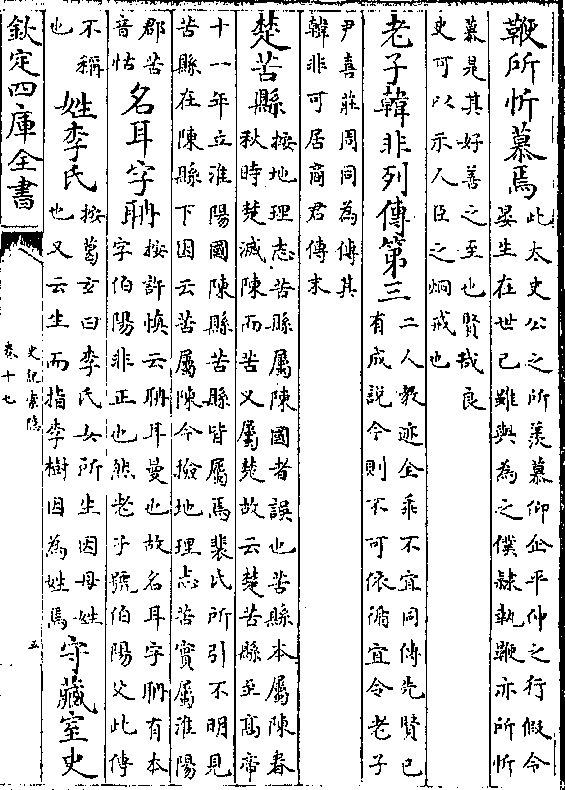 鞭所忻慕焉此太史公之所羨慕仰企平仲之行假令
晏生在世已雖與為之僕隸執鞭亦所忻
慕是其好善之至也賢哉良
史可以示人臣之炯戒也
老子韓非列傳第三二人教迹全乖不宜同傳先賢已
有成說今則不可依循宜令老子
尹喜莊周同為傳其
韓非可居商君傳末
楚苦縣按地理志苦縣屬陳國者誤也苦縣本屬陳春
秋時楚滅陳而苦又屬楚故云楚苦縣至高帝
十一年立淮陽國陳縣苦縣皆屬焉裴氏所引不明見
苦縣在陳縣下因云苦屬陳今撿地理志苦實屬淮陽
郡苦
音怙
名耳字耼按許慎云耼耳曼也故名耳字耼有本
字伯陽非正也然老子號伯陽父此傳
不稱
也
姓李氏按葛玄曰李氏女所生因母姓
也又云生而指李樹因為姓焉
守藏室史
欽定四庫全書
史記索隱
卷十七
五